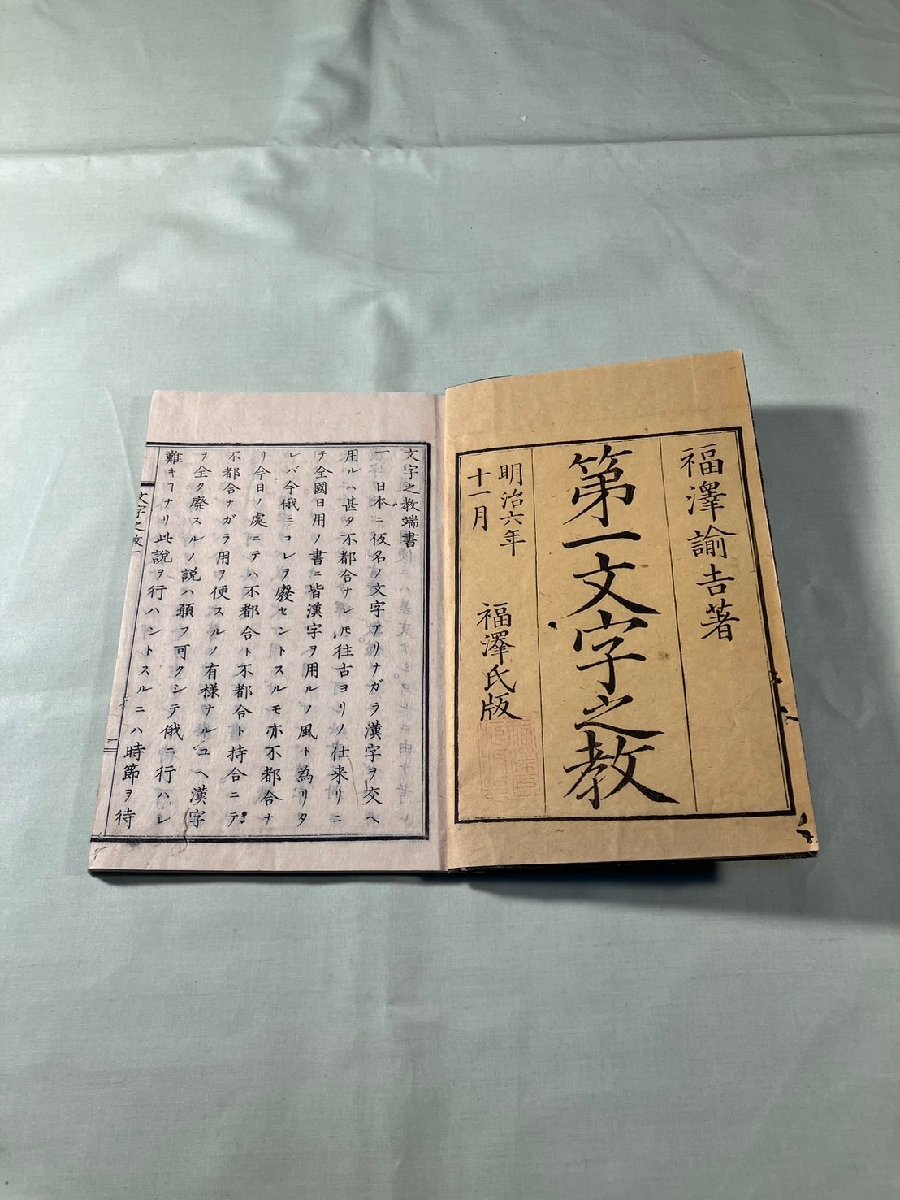 福澤諭吉著
第一文字之教
明治六年
十一月
福澤氏版
文字之教端書
一 日本ニ仮名ノ文字アリナガラ漢字ヲ交ヘ
用ルハ甚タ不都合ナレ𪜈往古ヨリノ仕来リニ
テ全國日用ノ書ニ皆漢字ヲ用ルノ風ト為リタ
レバ今俄ニコレヲ廢セントスルモ亦不都合ナ
リ今日ノ處ニテハ不都合ト不都合ト持合ニテ
不都合ナガラ用ヲ便スルノ有様ナルユヘ漢字
ヲ全ク廃スルノ説ハ願フ可クシテ俄ニ行ハレ
難キヿナリ此説ヲ行ハントスルニハ時節ヲ待
文字之教一